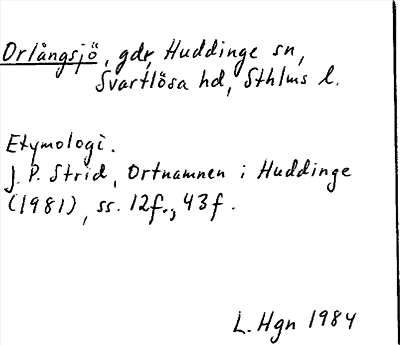 Orlångsjö, gdr, Huddinge sn,
Svartlösa hd, Sthlms l.
Etymologi.
J. P. Strid, Ortnamnen i Huddinge
(1981), ss. 12f., 43f.
L. Hgn 1984